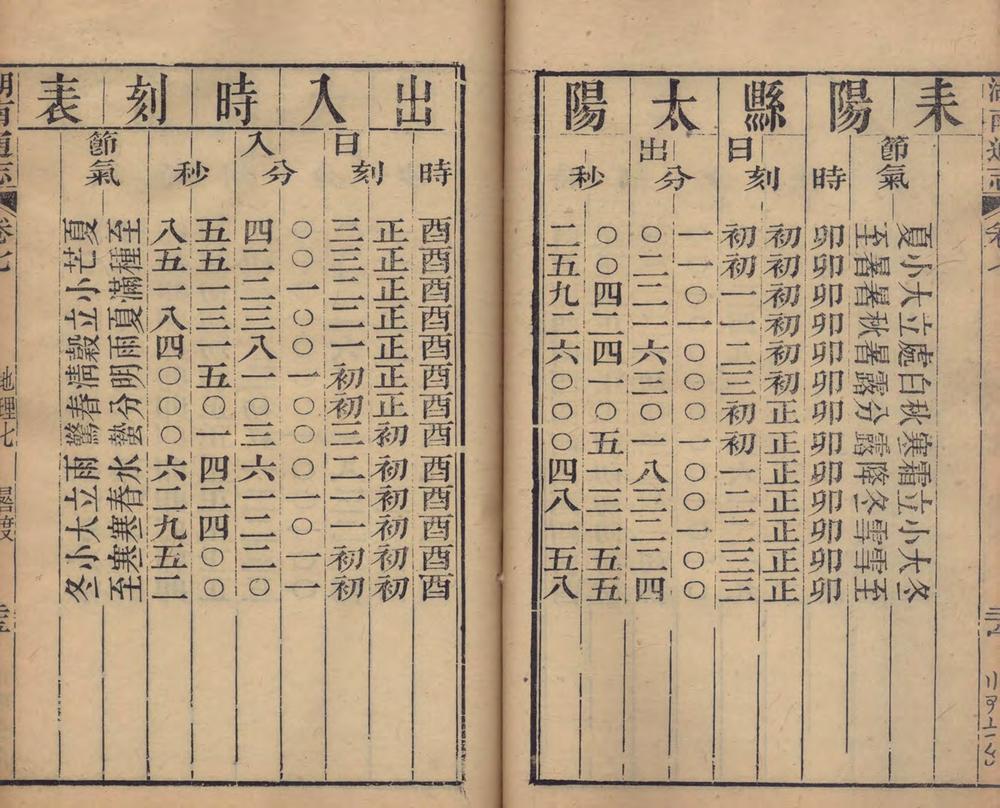 耒陽縣太陽
節氣
時
日出
刻
分
秒
夏小大立處白秋寒霜立小大冬
至暑暑秋暑露分露降冬雪雪至
卯卯卯卯卯卯卯卯卯卯卯卯卯
初初初初初初正正正正正正正
初初一一二三初初一二二三三
一一〇一〇〇〇一〇〇一〇〇
〇二二一六三〇一八三二二四
〇〇四二四一〇五一三一五五
二五九二六〇〇〇四八一五八
出入時刻表
時
日入
刻
分
秒
節氣
酉酉酉酉酉酉酉酉酉酉酉酉酉
正正正正正正正初初初初初初
三三二二一初初三二一一初初
〇〇一〇〇一〇〇〇一〇一一
四二二三八一〇三六一二二〇
五五一三一五〇一四二四〇〇
八五一八四〇〇〇六二九五二
至種滿夏雨明分蟄水春寒寒至
夏芒小立穀清春驚雨立大小冬
湖南通志
卷七
地理七
晷度